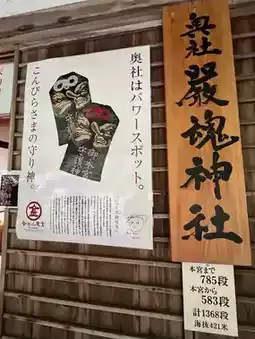 奥社はパワースポット。
こんぴらさまの守り神。
奥社
嚴魂神社
本宮まで
785段
本宮から
583段
計1368段
海抜421米